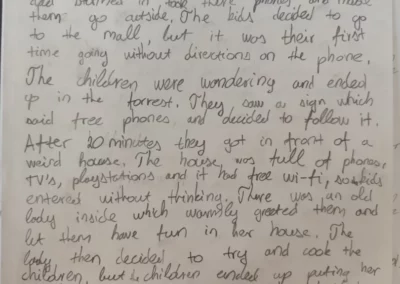 took their phones and made
them go outside. The kids decided to go
to the mall but it was their first
time going without directions on the phone.
The children were wondering and ended
up in the forrest. They saw a sign which
said free phones and decided to follow it.
After 20 minutes they got in front of a
weird house. The house was full of phones,
TV's, playstations and it had free wi-fi, so kids
entered without thinking. There was an old
lady inside which warmly greeted them and
let them have fun in her house. The
lady then decided to try and cook the
children, but the children ended up putting her